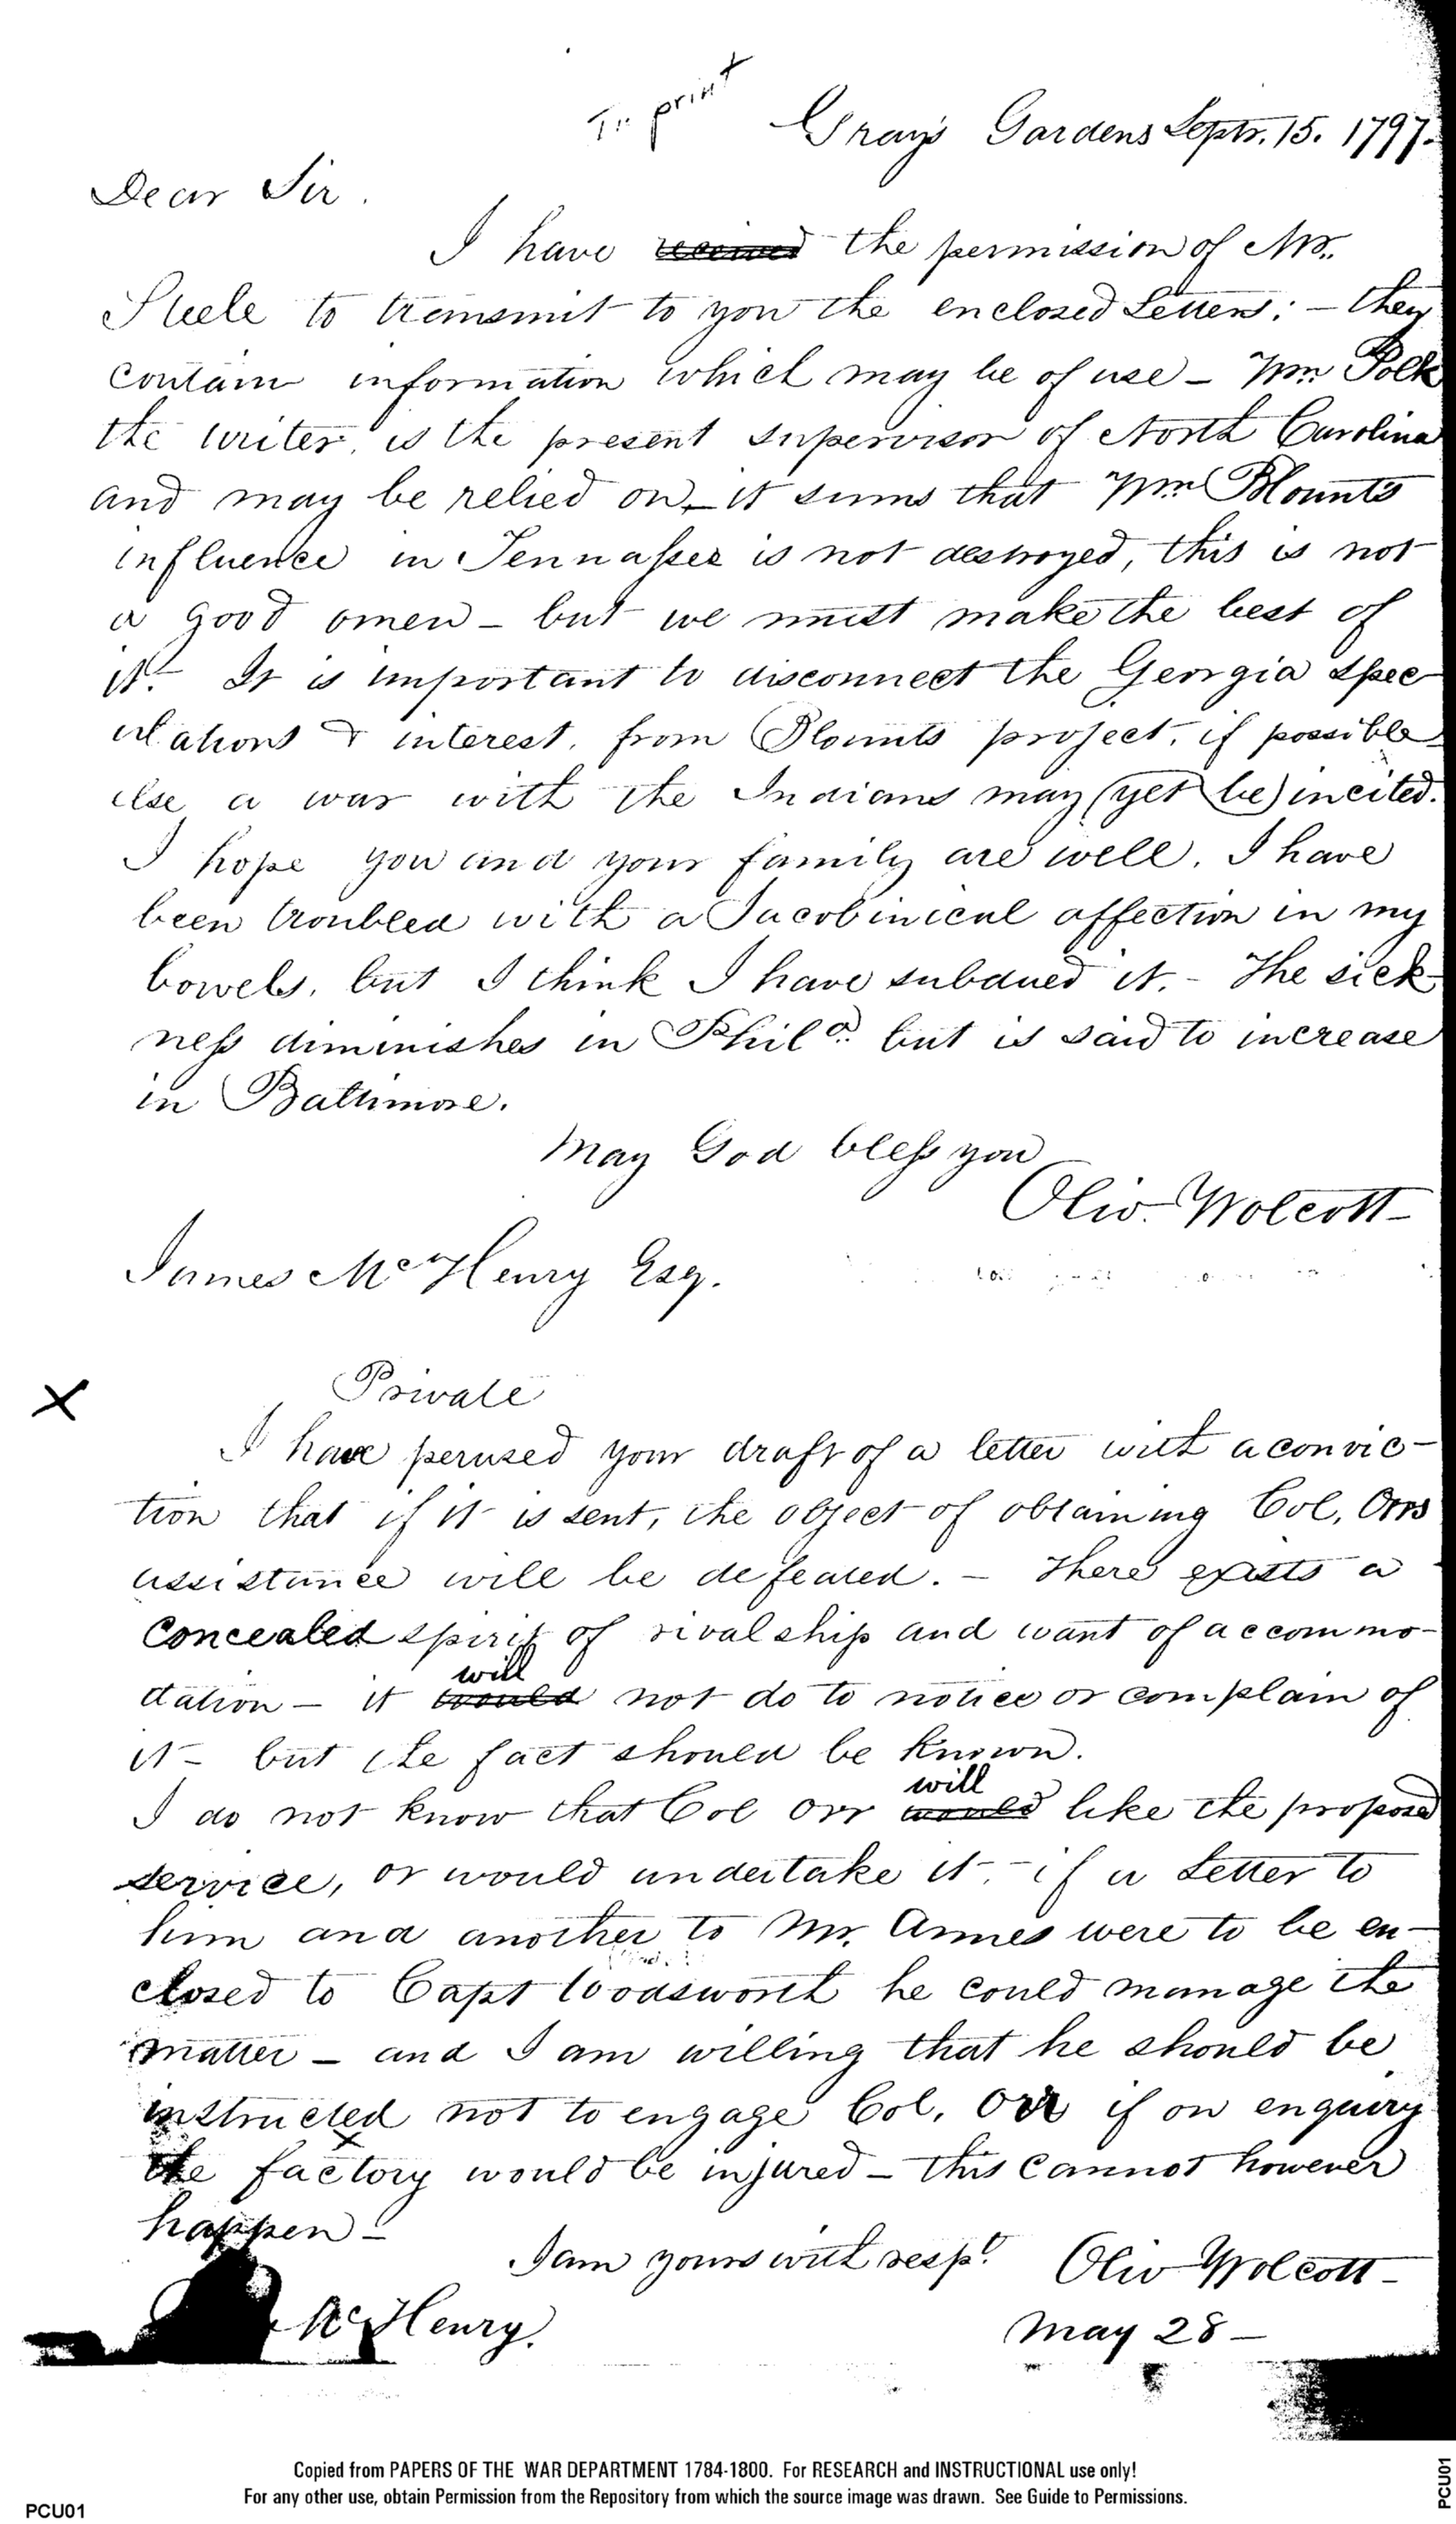 To print
Gray's Gardens Septr. 15. 1797.
Dear Sir.
I have received the permission of Mr.
Steele to transmit to you the enclosed Letters; - they
contain information which may be of use - Wm Polk
the writer, is the present supervisor of North Carolina
and may be relied on - it seems that Wm Blounts
influence in Tennassee is not destroyed, this is not
a good omen - but we must make the best of
it. It is important to disconnect the Georgia spec
ulations & interest, from Blounts project, if possible
else a war with the Indians may (yet be) incited.
I hope you and your family are well. I have
been troubled with a Jacobinical affection in my
bowels, but I think I have subdued it. - The sick-
ness diminishes in Phila. but is said to increase
in Baltimore.
May God bless you
Oliv. Wolcott -
James McHenry Esq.
X
Private
I have perused your draft of a letter with a convic-
tion that if it is sent, the object of obtaining Col. Orrs
assistance will be defeated. - There exists a
concealed spirit of rivalship and want of accommo-
will
dation - it would not do to notice or complain of
it - but the fact should be known.
will
I do not know that Col Orr would like the proposed
service, or would undertake it. - if a Letter to
him and another to Mr. Annes were to be en-
closed to Capt Woodsworth he could manage the
matter - and I am willing that he should be
instructed not to engage Col. Orr if on enquiry
x
the factory would be injured - this cannot however
happen -
I am yours with respt. Oliv Wolcott -
McHenry.
May 28 -
Copied from PAPERS OF THE WAR DEPARTMENT 1784-1800. For RESEARCH and INSTRUCTIONAL use only!
For any other use, obtain Permission from the Repository from which the source image was drawn. See Guide to Permissions.
PCU01
PCU01